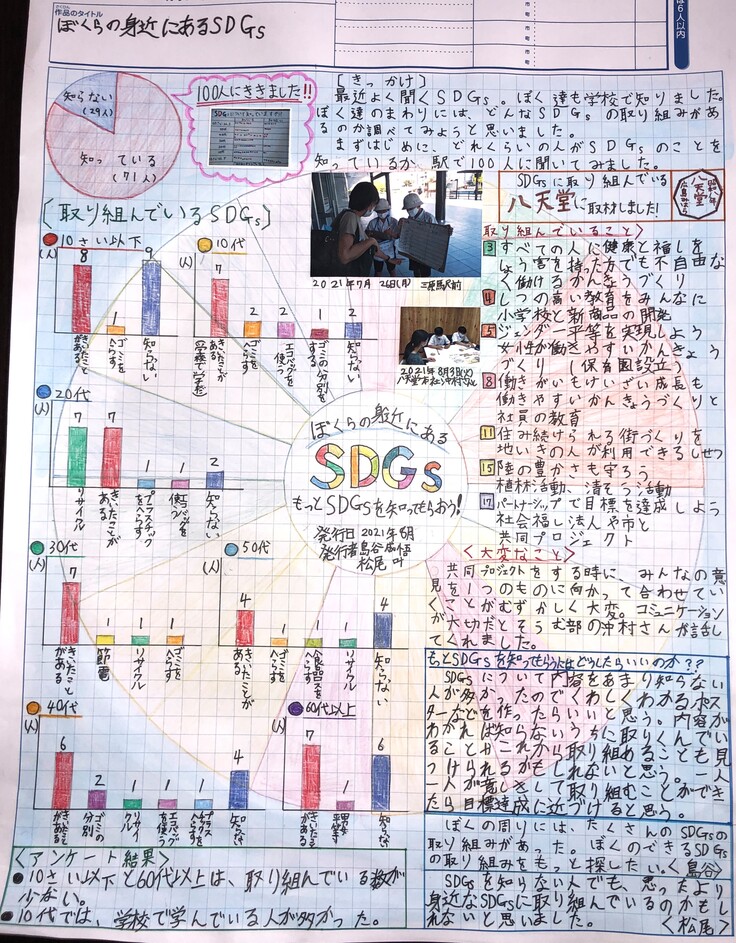 作品のタイトル
ぼくらの身近にあるSDGs
は6人以内
知らない
(29人)
知っている
(71人)
100人にききました!!
[きっかけ]
最近よく聞くSDGs。ぼく達も学校で知りました。
ぼく達のまわりには、どんなSDGsの取り組みがあ
るのか調べてみようと思いました。
まずはじめに、どれくらいの人がSDGsのことを
知っているか、駅で100人に聞いてみました。
[取り組んでいるSDGs]
2021年7月26日(月) 三原駅前
2021年8月3日(火)
八天堂本社 沖村さん
SDGsに取り組んでいる
八天堂に取材しました!
八天堂
10さい以下
(人)
8
1
9
きいたことがある
ゴミをへらす
知らない
10代
(人)
7
2
2
1
2
きいたことがある(学校で学んだ)
ゴミをへらす
エコバッグを使う
ゴミの分別をする
知らない
20代
(人)
7
7
1
1
2
リサイクル
きいたことがある
プラスチックをへらす
エコバッグを使う
知らない
30代
(人)
7
1
1
1
きいたことがある
節電
リサイクル
ゴミをへらす
50代
(人)
4
1
1
1
4
きいたことがある
ゴミをへらす
食品ロスをへらす
リサイクル
知らない
40代
(人)
6
2
1
1
1
4
きいたことがある
ゴミの分別
リサイクル
エコバッグを使う
プラスチックをへらす
知らない
60代以上
(人)
7
1
6
きいたことがある
男女平等
知らない
ぼくらの身近にある
SDGs
もっとSDGsを知ってもらおう!
発行日 2021年8月
発行者 島谷
松尾 叶
取り組んでいること
3 すべての人に健康と福しを
しょう害を持った方でも不自由な
く働けるかんきょうづくり
4 しつの高い教育をみんなに
小学校と新商品の開発
5 ジェンダー平等を実現しよう
女性が働きやすいかんきょう
づくり(保育園設立)
8 働きがいもけいざい成長も
働きやすいかんきょうづくりと
社員の教育
11 住み続けられる街づくりを
地いきの人が利用できるしせつ
15 陸の豊かさも守ろう
植林活動、清そう活動
17 パートナーシップで目標を達成しよう
社会福し法人や市と
共同プロジェクト
<大変なこと>
共同プロジェクトをする時に、みんなの意
見を1つのものに向かって合わせてい
くことがむずかしく大変。コミュニケーション
が大切だとそうむ部の沖村さんが話し
てくれました。
もっとSDGsを知ってもらうにはどうしたらいいのか??
SDGsについて内容をあまり知らない
人が多かったのでくわしくわかるポス
ターなどを作ったらいいと思う。内容が
わかれば知らないうちに取りくんでい
ることやこれから取り組めることも見
つけられるかもしれないと思う。一人
一人が意しきして取り組むことができ
たら目標達成に近づけると思う。
ぼくの周りには、たくさんのSDGsの
取り組みがあった。ぼくのできるSDGs
の取り組みをもっと探したい。<島谷>
SDGsを知らない人でも、思ったより
身近なSDGsに取り組んでいるのかもし
れないと思いました。 <松尾>
<アンケート結果>
●10さい以下と60代以上は、取り組んでいる数が
少ない。
●10代では、学校で学んでいる人が多かった。